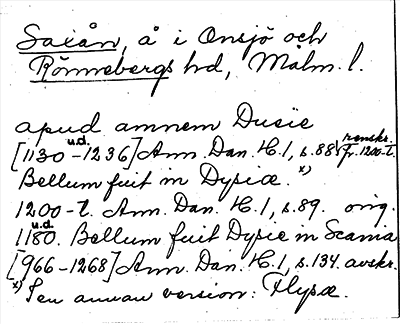 Saxån, å i Onsjö och
Rönnebergs hd, Malm. l.
apud amnem Dusie
[1130 u.d. -1236] Ann. Dan. H. 1, s. 88 renskr. fr. 1200-t.
Bellum fuit in Dysiæ. x)
1200-t. Ann. Dan. H. 1, s. 89. orig.
1180 u.d. Bellum fuit Dysie in Scania
[966-1268] Ann. Dan. H. 1, s. 134. avskr.
x) I en annan version: Flysæ.